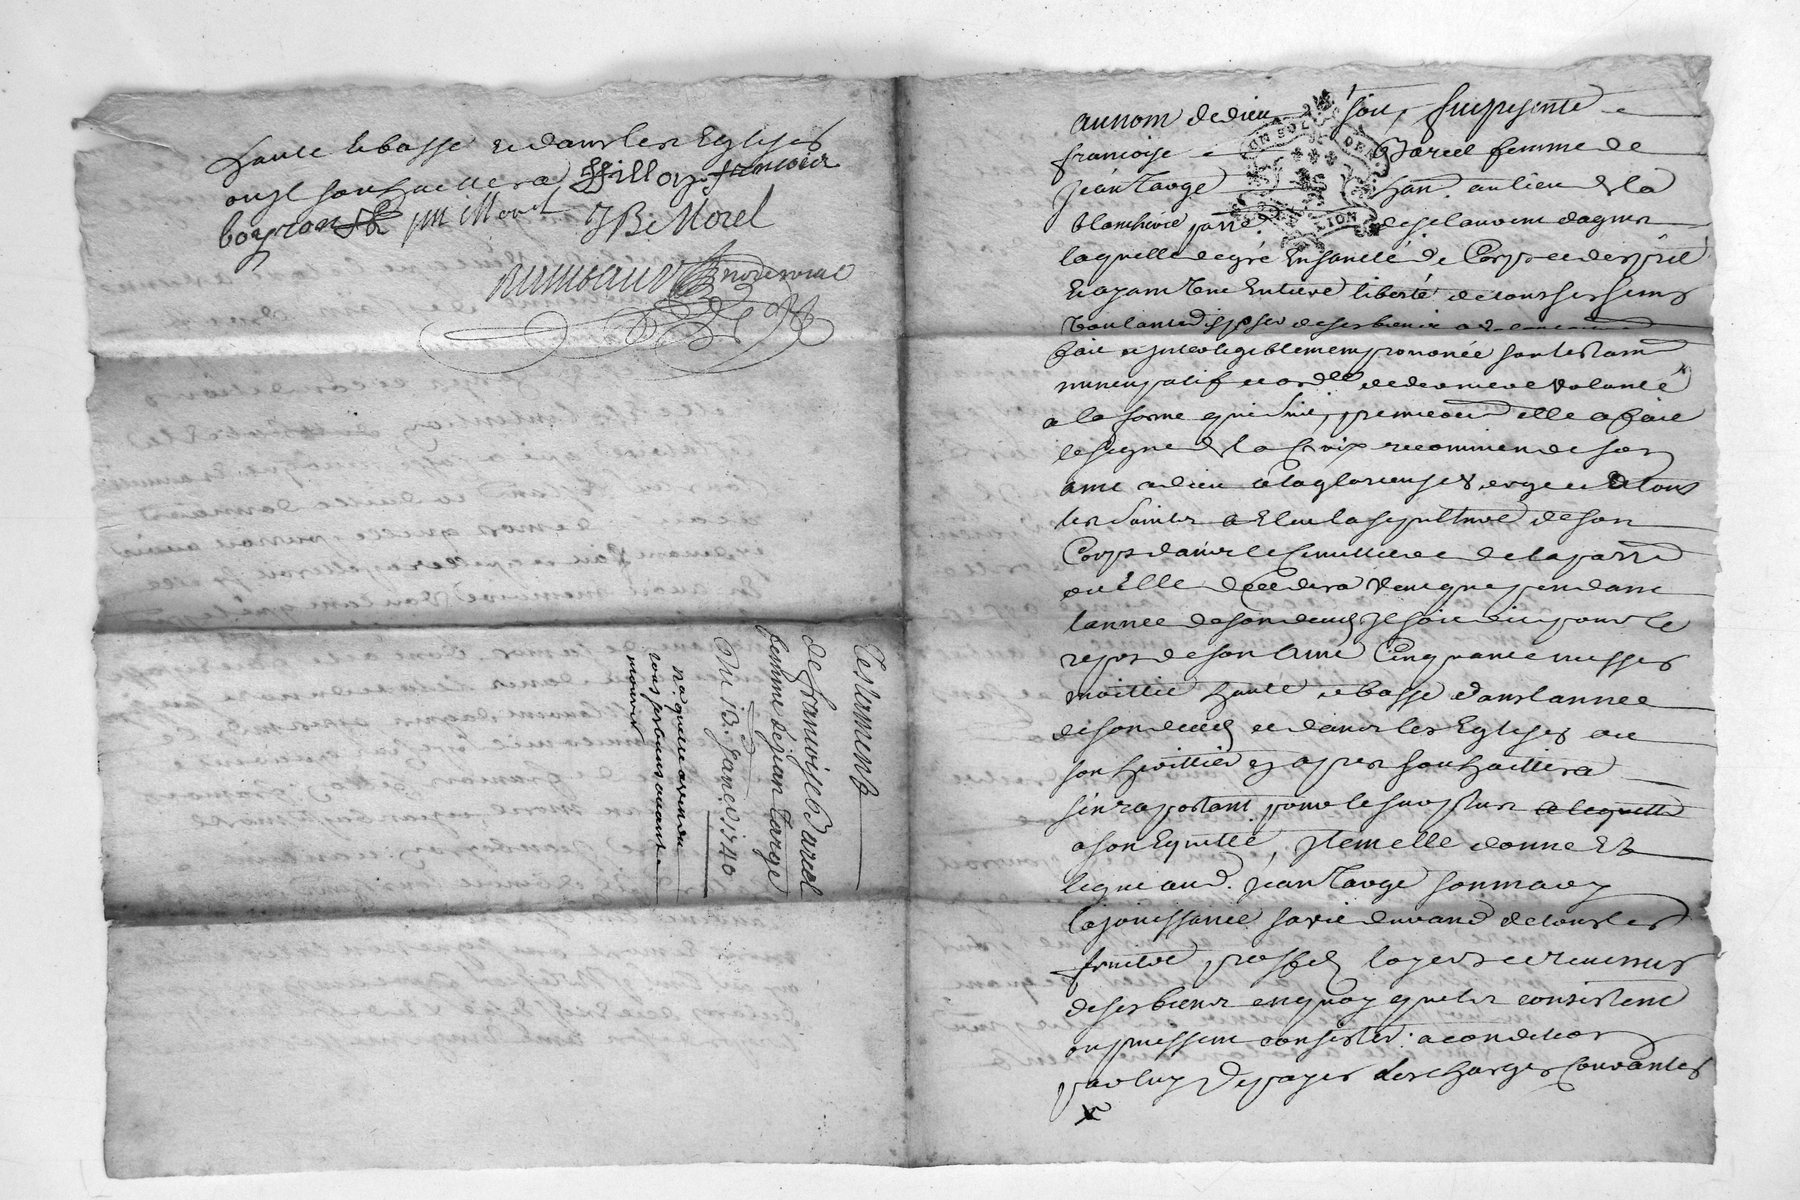 haute et basse et dans les Eglises
ou yl souhaittera fillon francois
boyron JM Morel JB Morel
Testament
de francoise barcel
femme de jean Targe
Du 18. janer 1740
na quitte a rendu
vous serbiens auant
mourir
au nom de dieu soit, fut presente
francoise Barcel femme de
jean Targe han au lieu de la
blanchivie parre de st lauvent dagnis
laquelle de gré En santé de Corps et desprit
Et ayant Une Entiere liberté de tous ses sens
Voulant disposer de ses biens a
fait et inteligiblement prononcé son testam
nuncupatif et ordce de derniere volonté
a la forme qui suit, premierement elle a fait
le signe de la Croix recommende son
ame a dieu a la glorieuse vierge et de tous
les Saints a Elu la sepulture de son
Corps dans le Cimettiere de la parre
ou Elle decedera Veut que pendant
lannee de son deuil jl soit dit pour le
repos de son Ame Cinquante messes
moittié haute et basse dans lannee
de son deuil et dans les Eglises ou
son heritier cy apres souhaittera
sen raportant pour le surplus
a son Equitté, jtem elle donne Et
legue aud. jean Targe son mary
la jouissance sa vie durand de tous les
fruits profits loyers et revenus
de ses biens en quoy quils consistent
ou puissent consister : a condition
par luy de payer les charges Courantes